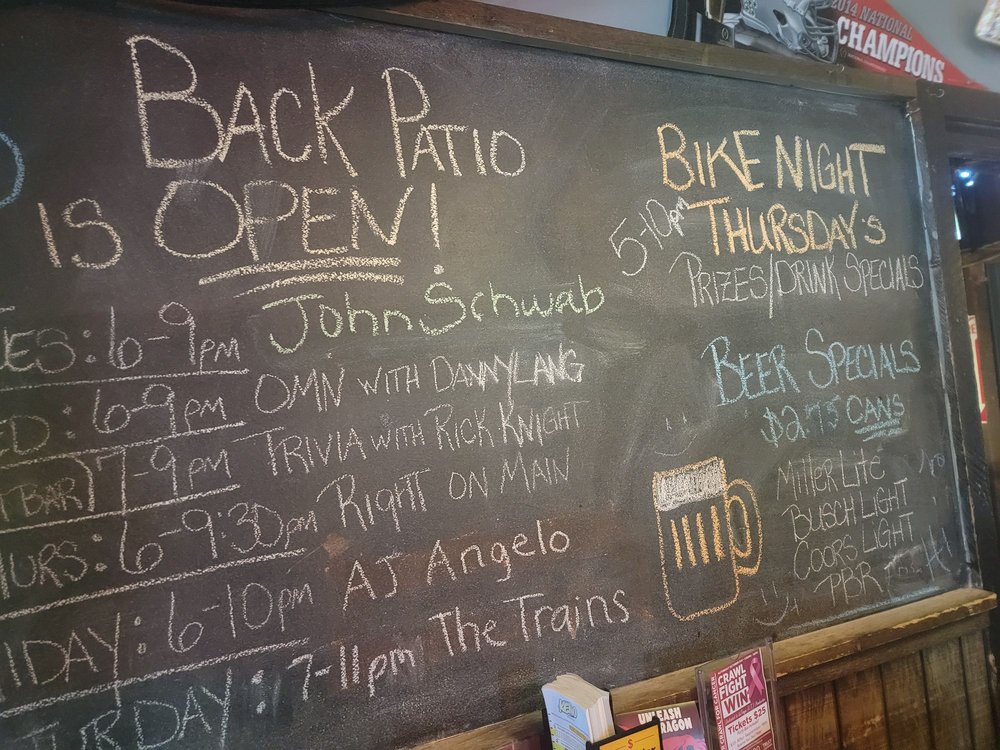 2014 NATIONAL
CHAMPIONS
BACK PATIO
IS OPEN!
BIKE NIGHT
THURSDAY'S
5-10pm
PRIZES/DRINK SPECIALS
John Schwab
ES: 6-9PM
OMN WITH DANNY LANG
ED: 6-9PM
TRIVIA WITH RICK KNIGHT
TBAR) 7-9PM
RIGHT ON MAIN
HURS: 6-9:30pm
AJ Angelo
IDAY: 6-10pm
The Trains
URDAY: 7-11pm
BEER SPECIALS
$2.75 CANS
MILLER LITE
BUSCH LIGHT
COORS LIGHT
PBR
CRAWL
FIGHT
WIN
Tickets $25
UNLEASH
DRAGON